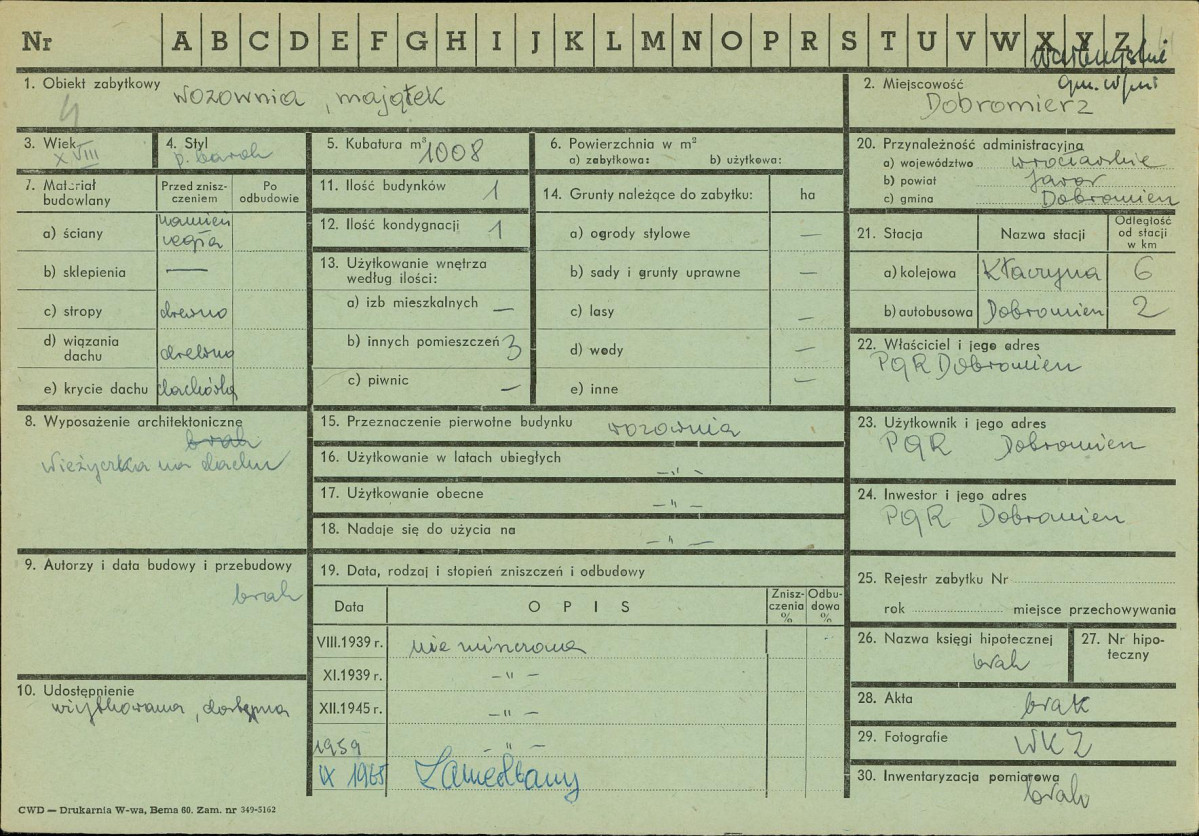 Nr A B C D E F G H I J K L M N O P R S T U V W X Y Z
1. Obiekt zabytkowy
wozownia, majątek
4
2. Miejscowość
gm. wpis
Dobromierz
3. Wiek
XVIII
4. Styl
p. barok
5. Kubatura m³ 1008
6. Powierzchnia w m²
a) zabytkowa: b) użytkowa:
7. Materiał budowlany
Przed zniszczeniem
Po odbudowie
a) ściany kamień cegła
b) sklepienia —
c) stropy drewno
d) wiązania dachu drewno
e) krycie dachu dachówka
8. Wyposażenie architektoniczne
brak
wieżyczka na dachu
9. Autorzy i data budowy i przebudowy
brak
10. Udostępnienie
użytkowana, dostępna
11. Ilość budynków 1
12. Ilość kondygnacji 1
13. Użytkowanie wnętrza według ilości:
a) izb mieszkalnych —
b) innych pomieszczeń 3
c) piwnic —
14. Grunty należące do zabytku: ha
a) ogrody stylowe —
b) sady i grunty uprawne —
c) lasy —
d) wody —
e) inne —
15. Przeznaczenie pierwotne budynku wozownia
16. Użytkowanie w latach ubiegłych —"—
17. Użytkowanie obecne —"—
18. Nadaje się do użycia na —"—
19. Data, rodzaj i stopień zniszczeń i odbudowy
Data OPIS Zniszczenia % Odbudowa %
VIII.1939 r. nie niszczona
XI.1939 r. —"—
XII.1945 r. —"—
1959 —"—
IX 1965 Zaniedbany
20. Przynależność administracyjna
a) województwo wrocławskie
b) powiat Jawor
c) gmina Dobromierz
21. Stacja Nazwa stacji Odległość od stacji w km
a) kolejowa Kłaczyna 6
b) autobusowa Dobromierz 2
22. Właściciel i jego adres
PGR Dobromierz
23. Użytkownik i jego adres
PGR Dobromierz
24. Inwestor i jego adres
PGR Dobromierz
25. Rejestr zabytku Nr
rok miejsce przechowywania
26. Nazwa księgi hipotecznej
brak
27. Nr hipoteczny
28. Akta brak
29. Fotografie WKZ
30. Inwentaryzacja pomiarowa
brak
CWD — Drukarnia W-wa, Bema 60. Zam. nr 349-5162